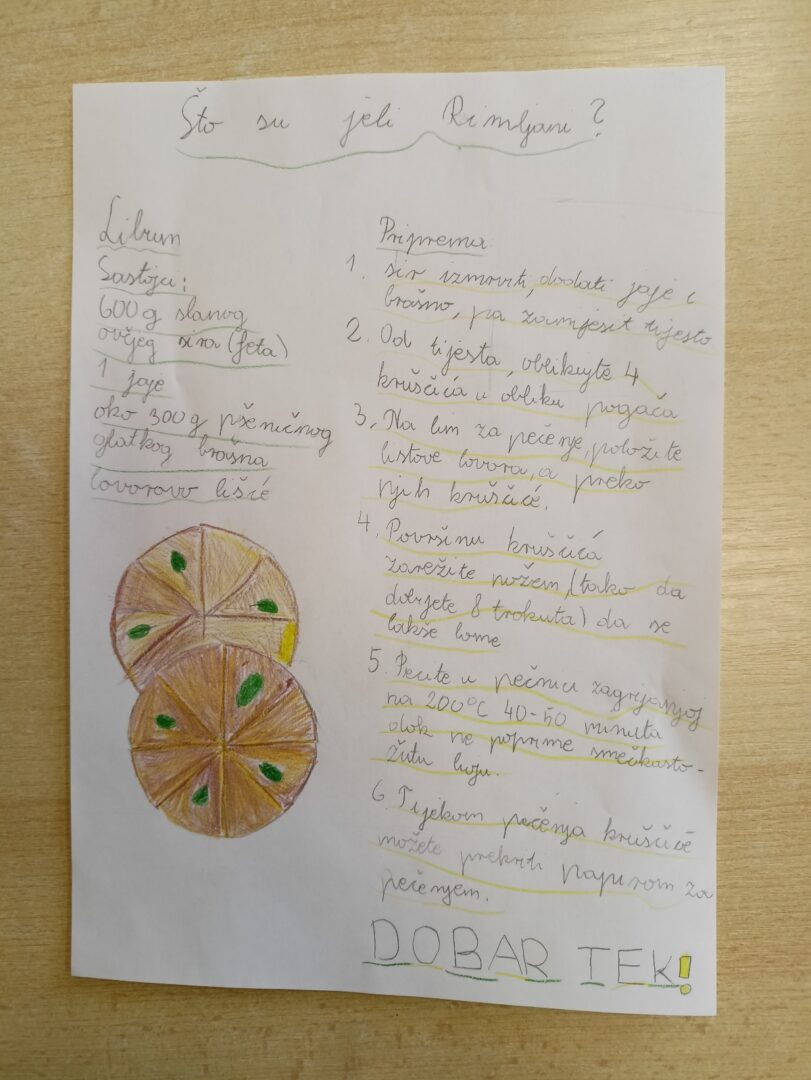 Što su jeli Rimljani?
Librum
Sastojci:
600 g slanog
ovčjeg sira (feta)
1 jaje
oko 300 g pšeničnog
glatkog brašna
lovorovo lišće
Priprema:
1. sir izmrviti, dodati jaje i
brašno, pa zamijesit tijesto
2. Od tijesta, oblikujte 4
kruščića u obliku pogača
3. Na lim za pečenje, položite
listove lovora, a preko
njih kruščiće.
4. Površinu kruščića
zarežite nožem (tako da
dobijete 8 trokuta) da se
lakše lome
5. Pecite u pećnici zagrijanoj
na 200°C 40-50 minuta
dok ne poprime smećkasto-
žutu boju.
6. Tijekom pečenja kruščiće
možete prekriti papirom za
pečenjem.
DOBAR TEK!